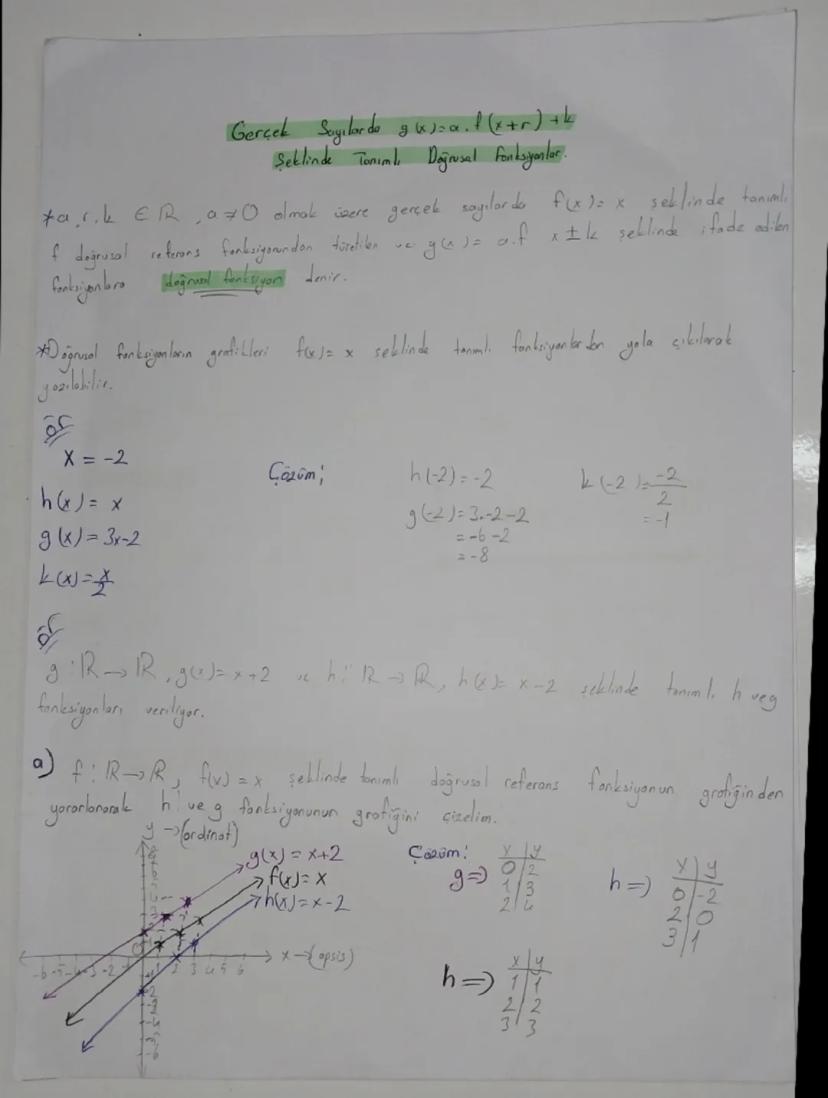 Gerçek Sayılarda g(x)=a.f(x+r)+k
Şeklinde Tanımlı Doğrusal Fonksiyonlar.
*a,r,k ∈ ℝ, a≠0 olmak üzere gerçek sayılarda f(x)=x şeklinde tanımlı
f doğrusal referans fonksiyonundan türetilen ve g(x)=a.f x±k şeklinde ifade edilen
fonksiyonlara doğrusal fonksiyon denir.
*Doğrusal fonksiyonların grafikleri f(x)=x şeklinde tanımlı fonksiyonlardan yola çıkılarak
yazılabilir.
ör
x = -2
h(x) = x
g(x) = 3x-2
k(x) = x/2
Çözüm:
h(-2) = -2
g(-2) = 3.-2-2
= -6-2
= -8
k(-2) = -2/2
= -1
ör
g: ℝ→ℝ, g(x)= x+2 ve h: ℝ→ℝ, h(x)= x-2 şeklinde tanımlı h ve g
fonksiyonları veriliyor.
a) f: ℝ→ℝ, f(x) = x şeklinde tanımlı doğrusal referans fonksiyonun grafiğinden
yararlanarak h ve g fonksiyonunun grafiğini çizelim.
y →(ordinat)
g(x) = x+2
f(x) = x
h(x) = x-2
x→(apsis)
-6 -5 -4 -3 -2 0 1 2 3 4 5 6
Çözüm:
g=>
x | y
0 | 2
1 | 3
2 | 4
h=>
x | y
0 | -2
2 | 0
3 | 1
h=>
x | y
1 | 1
2 | 2
3 | 3